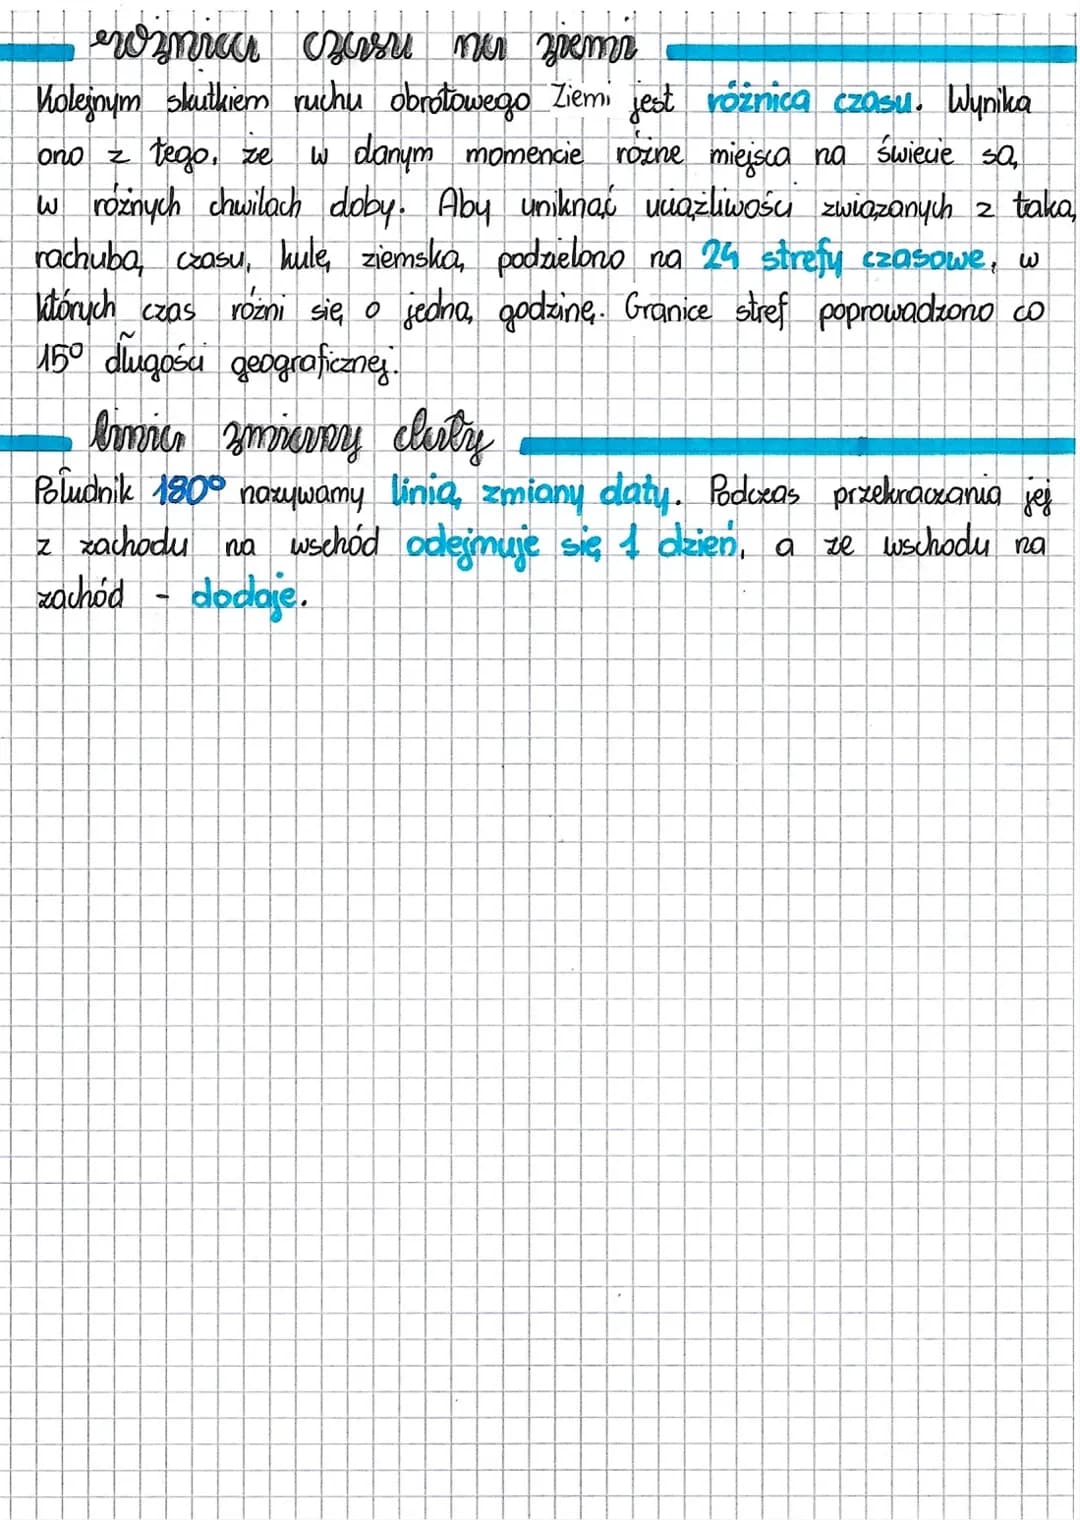 różnica czasu na ziemi
Kolejnym skutkiem ruchu obrotowego Ziemi jest różnica czasu. Wynika
ono z tego, że w danym momencie różne miejsca na świecie są
w różnych chwilach doby. Aby uniknąć uciążliwości związanych z taką
rachubą czasu, kulę ziemską podzielono na 24 strefy czasowe, w
których czas różni się o jedną godzinę. Granice stref poprowadzono co
15° długości geograficznej.
linia zmiany daty
Południk 180° nazywamy linią zmiany daty. Podczas przekraczania jej
z zachodu na wschód odejmuje się 1 dzień, a ze wschodu na
zachód - dodaje.